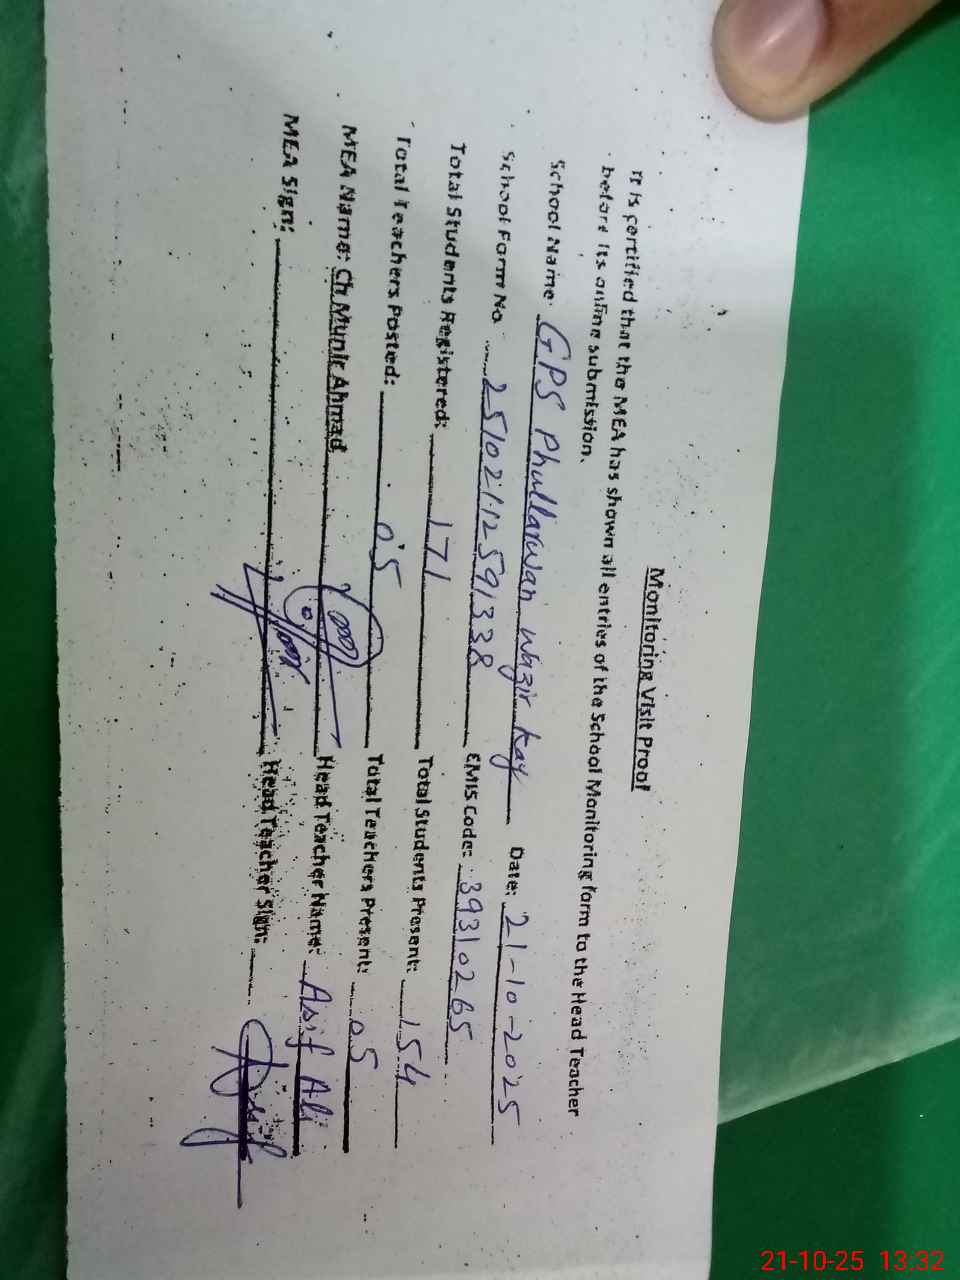 Monitoring Visit Proof
It is certified that the MEA has shown all entries of the School Monitoring form to the Head Teacher
before its online submission.
School Name: GPS Phullarwan Wazir Kay Date: 21-10-2025
School Form No. 25102112591338 EMIS Code: 39310265
Total Students Registered: 171 Total Students Present: 154
Total Teachers Posted: 05 Total Teachers Present: 05
MEA Name: Ch Munir Ahmad Head Teacher Name: Asif Ali
MEA Sign: Head Teacher Sign:
21-10-25 13:32